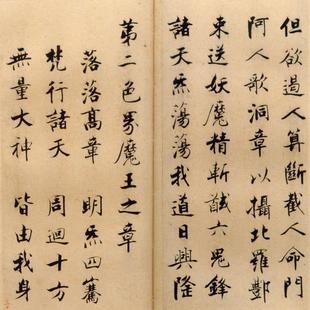 但欲遏人算斷截人命門
阿人歌洞章以攝北羅酆
束送妖魔精斬馘六鬼鋒
諸天炁蕩蕩我道日興隆
第二色界魔王之章
落落高章 明炁四騫
梵行諸天 周迴十方
無量大神 皆由我身